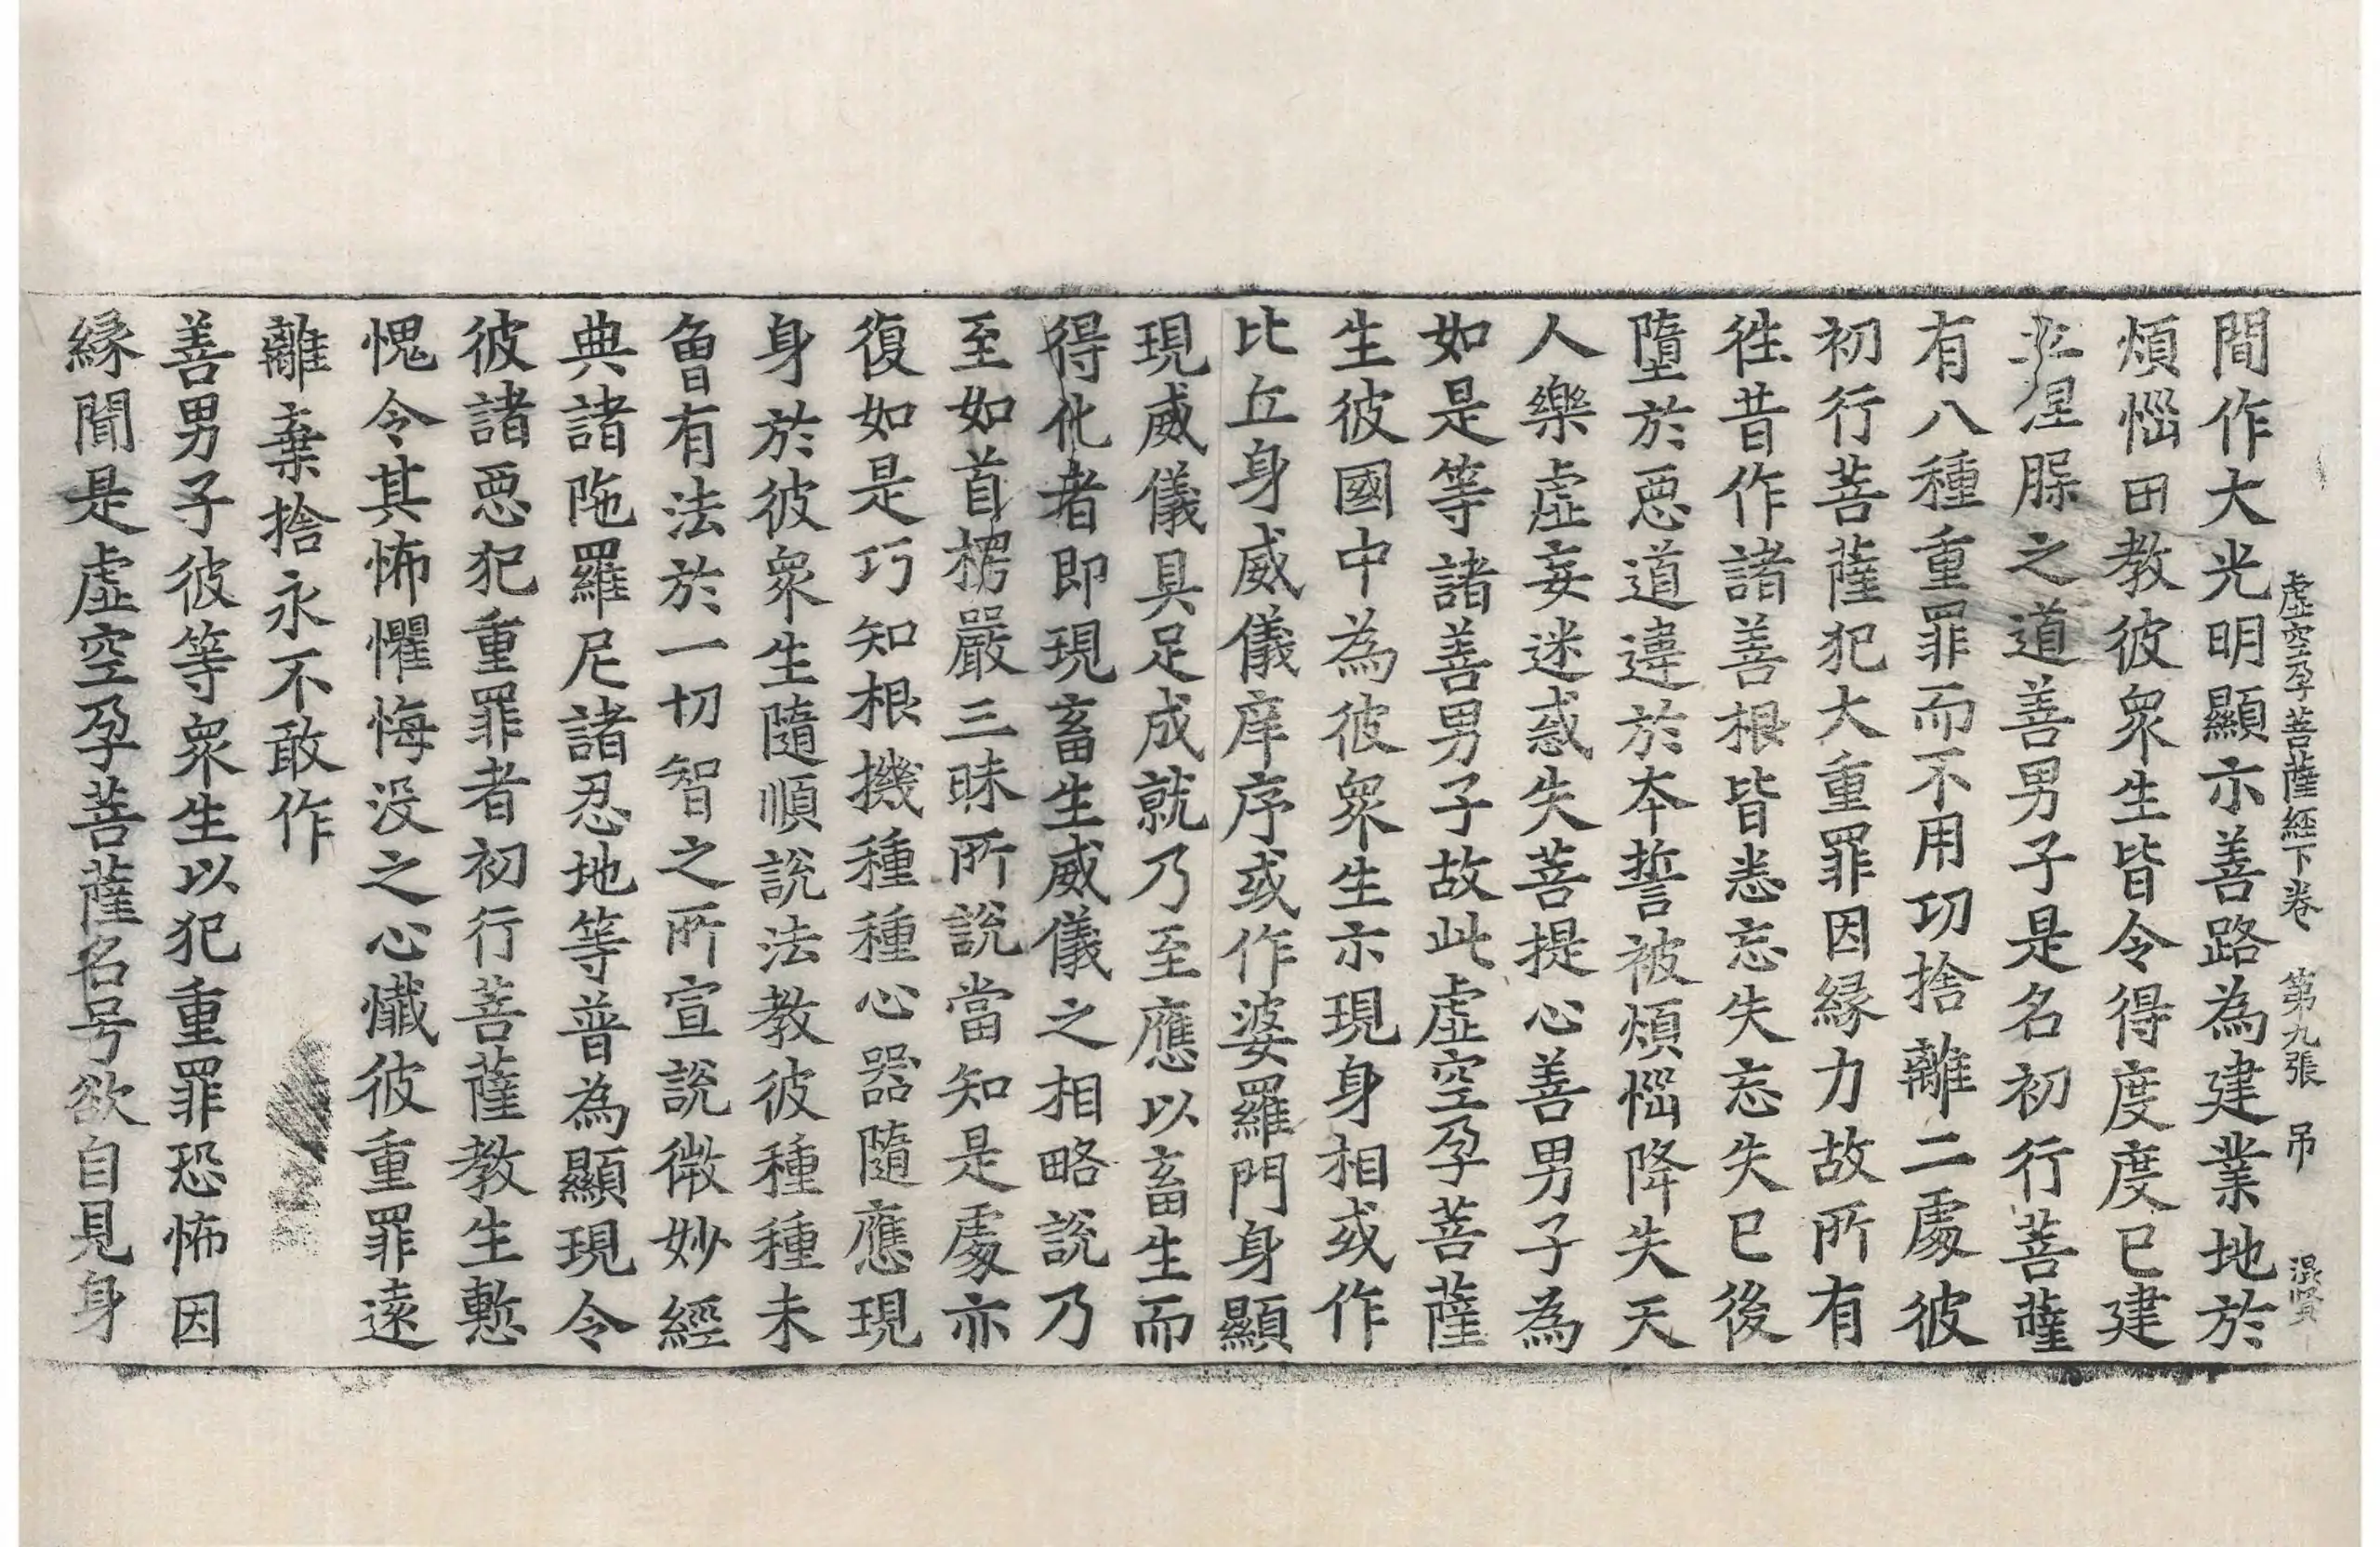 虛空孕菩薩經下卷 第九張 吊
間作大光明顯示善路為建業地於
煩惱田教彼衆生皆令得度度已建
涅脲之道善男子是名初行菩薩
有八種重罪而不用切捨離二處彼
初行菩薩犯大重罪因緣力故所有
徃昔作諸善根皆悉忘失忘失已後
墮於惡道違於本誓被煩惱降失天
人樂虛妄迷惑失菩提心善男子為
如是等諸善男子故此虛空孕菩薩
生彼國中為彼衆生示現身相或作
比丘身威儀庠序或作婆羅門身顯
現威儀具足成就乃至應以畜生而
得化者即現畜生威儀之相略說乃
至如首楞嚴三昧所說當知是處亦
復如是巧知根機種種心器隨應現
身於彼衆生隨順說法教彼種種未
曾有法於一切智之所宣說微妙經
典諸陁羅尼諸忍地等普為顯現令
彼諸惡犯重罪者初行菩薩教生慙
愧令其怖懼悔没之心懺彼重罪遠
離棄捨永不敢作
善男子彼等衆生以犯重罪恐怖因
緣聞是虛空孕菩薩名号欲自見身